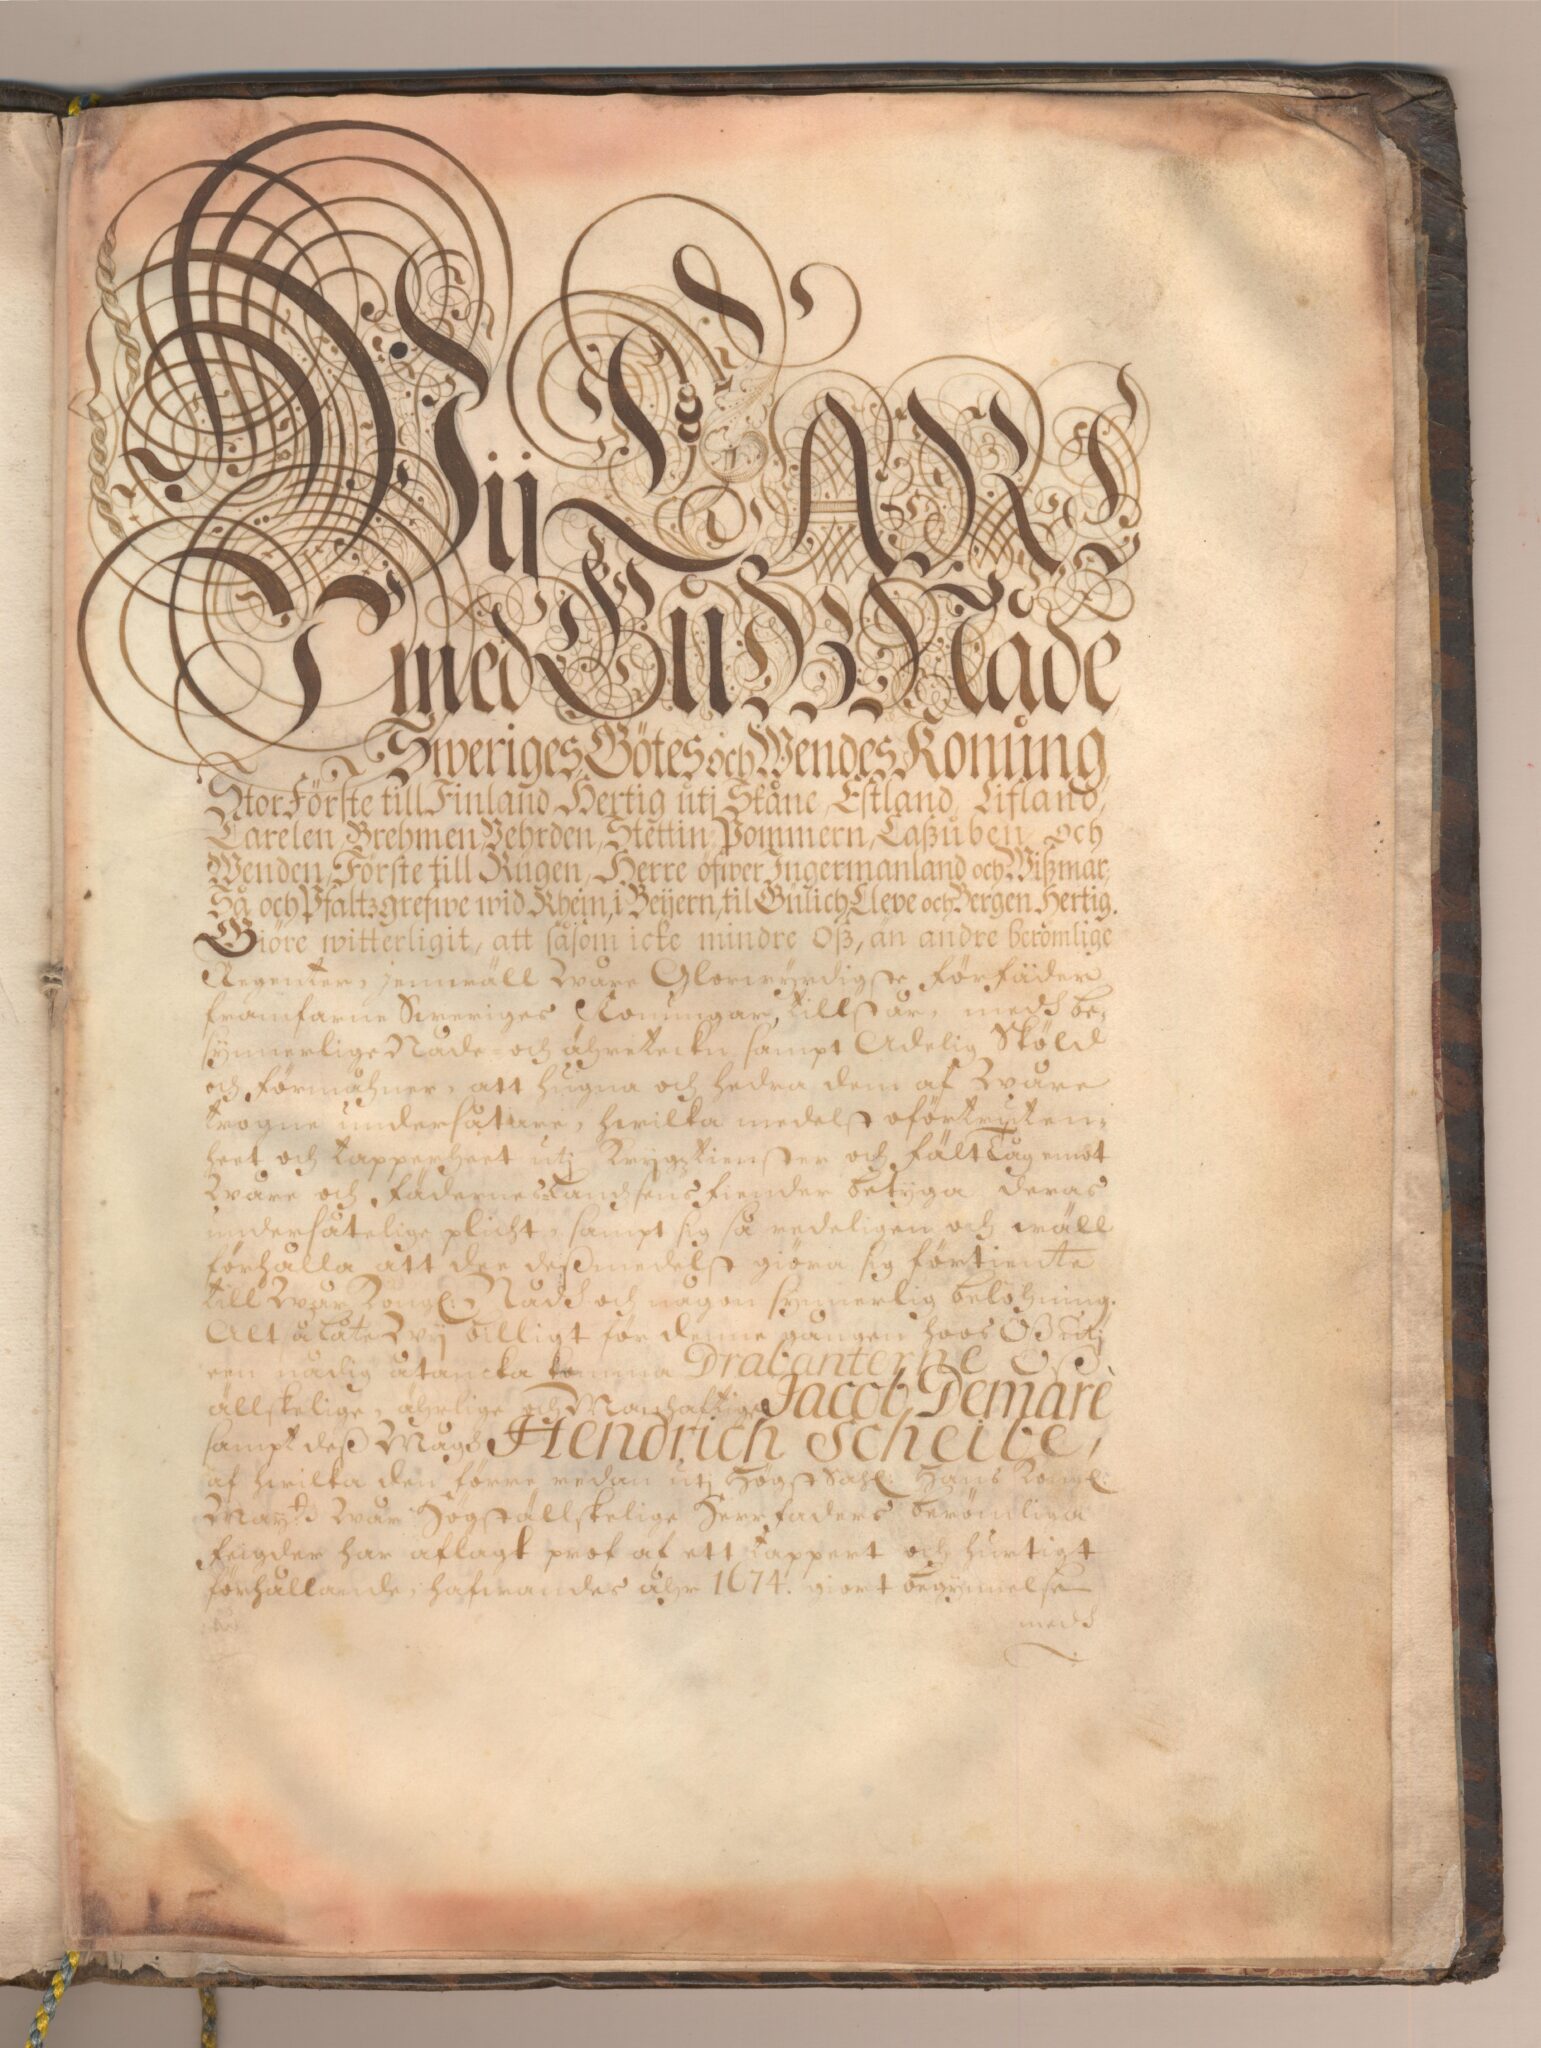 Wij CARL
med Gudz Nåde
Sweriges, Götes och Wendes Konung,
StorFörste till Finland, Hertig utj Skåne, Estland, Lifland,
Carelen, Brehmen, Vehrden, Stettin, Pommern, Caßuben och
Wenden, Förste till Rügen, Herre öfwer Ingermanland och Wißmar;
Så och Pfaltzgrefwe wid Rhein, i Beijern, til Gülich, Cleve och Bergen Hertig.
Giöre witterligit, att såsom icke mindre Oß, än andre berömlige
Regenter, jemwäll Wåre Glorwyrdigste Förfäder
framfarne Sweriges Konungar, tillstår, medh be-
synnerlige Nåde- och ähretecku, sampt Adelig Sköld
och Förmåhner, att hugna och hedra dem af Wåre
trogne undersåtare, hwilka medelst oförtruten-
heet och tapperheet utj Krygztienster och FältTåg emot
Wåre och FäderneslLandsens fiender betyga deras
undersåtelige plicht, sampt sig så redeligen och wäll
förhålla, att dee deßmedelst giöra sig förtiente
till Wår Kongl: Nådh och någon synnerlig belöhning.
Alt så låte Wij billigt för denne gången hoos Oß utj
een nådig åtancka komma Drabanterne Oß
ällskelige, ährlige och Manhaftige Jacob Demarè
sampt deß Mågh Hendrich Scheibe,
af hwilka den förre redan utj Högst Sahl: Hans Kongl:
May:tz Wår Högställskelige Herr Faders berömliga
Feigder har aflagt prof af ett tappert och hurtigt
förhållande, hafwandes åhr 1674. giort begynnelse
medh